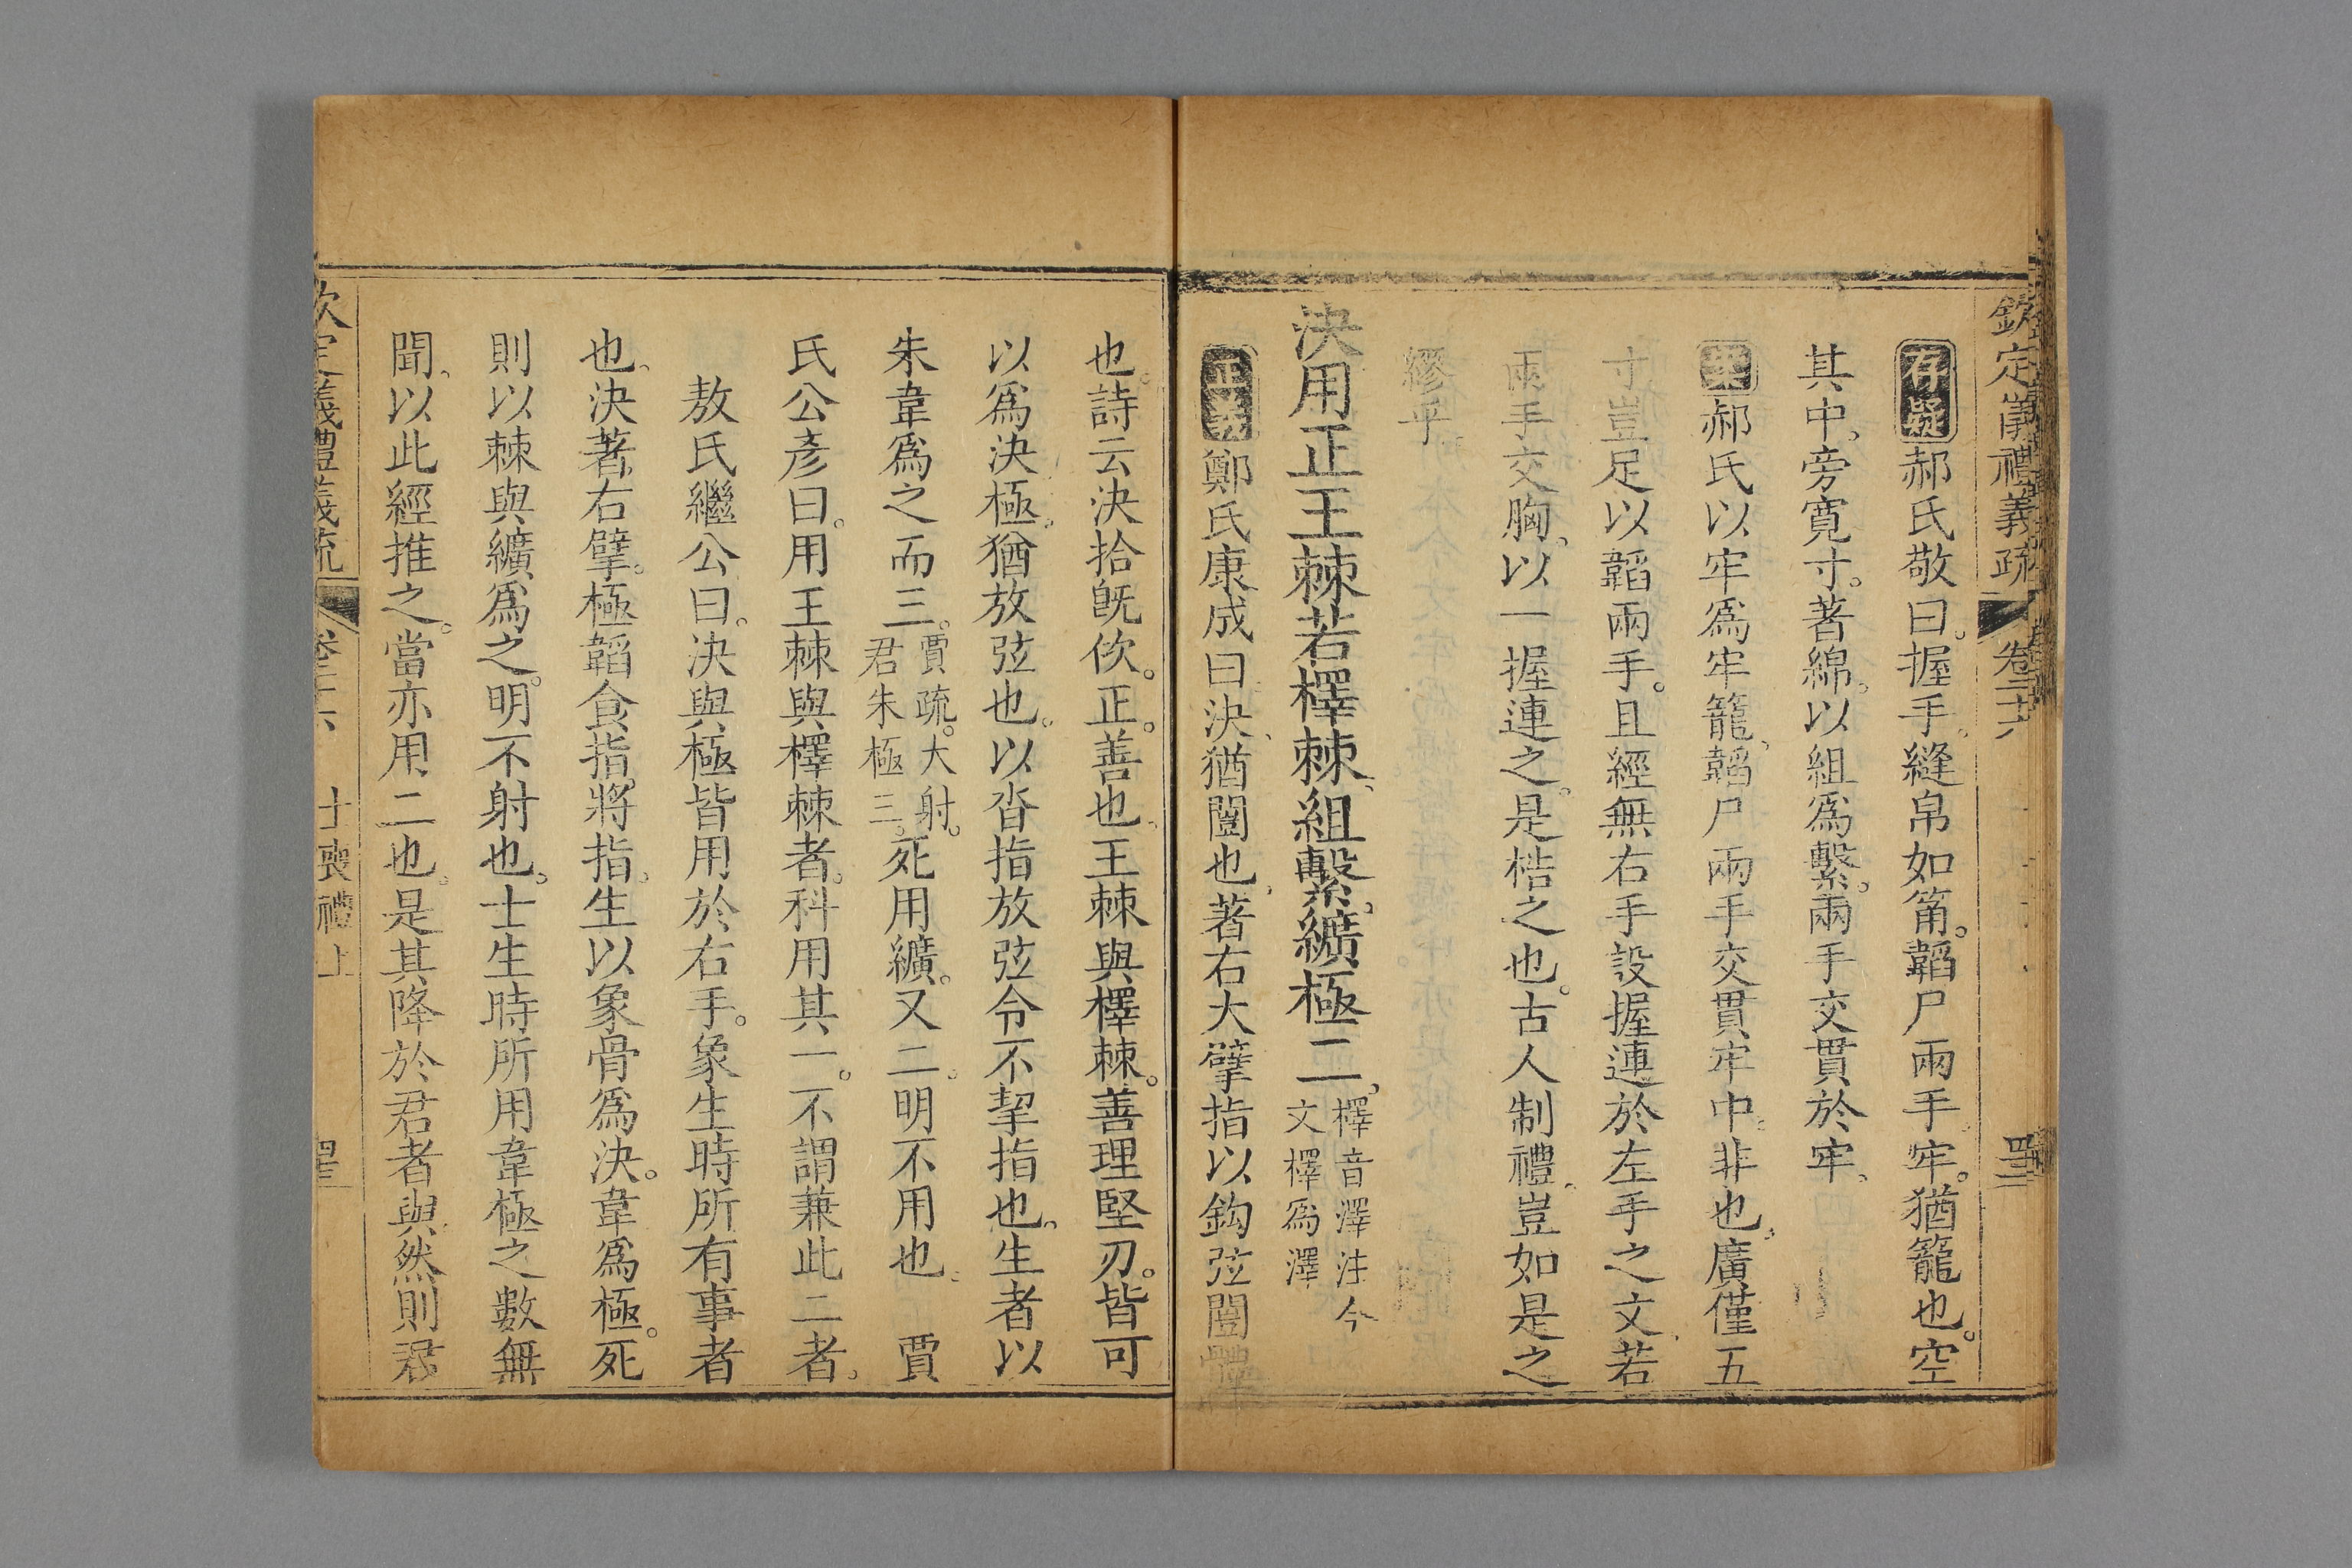 欽定儀禮義疏 卷二十六
存疑郝氏敬曰。握手。縫帛如筩。韜尸兩手。牢。猶籠也。空
其中、旁寬寸。著綿。以組爲繫。兩手交貫於牢、
案郝氏以牢爲牢籠、韜尸兩手交貫牢中。非也。廣僅五
寸豈足以韜兩手。且經無右手設握連於左手之文、若
兩手交胸、以一握連之。是梏之也。古人制禮、豈如是之
繆乎
決用正王棘若檡棘、組繫、纊極二。檡音澤注今
文檡爲澤
正義鄭氏康成曰決、猶闓也、著右大擘指以鈎弦闓
也。詩云決拾旣佽。正。善也、王棘與檡棘。善理堅刃。皆可
以爲決極。猶放弦也。以沓指放弦令不挈指也、生者以
朱韋爲之而三。賈疏。大射。
君朱極三。死用纊。又二。明不用也 賈
氏公彥曰。用王棘與檡棘者。科用其一。不謂兼此二者。
敖氏繼公曰。決與極皆用於右手。象生時所有事者
也、決著右擘。極韜食指。將指。生以象骨爲決。韋爲極。死
則以棘與纊爲之。明不射也。士生時所用韋極之數無
聞、以此經推之。當亦用二也。是其降於君者與然則君
欽定儀禮義疏 卷二十六 士喪禮上